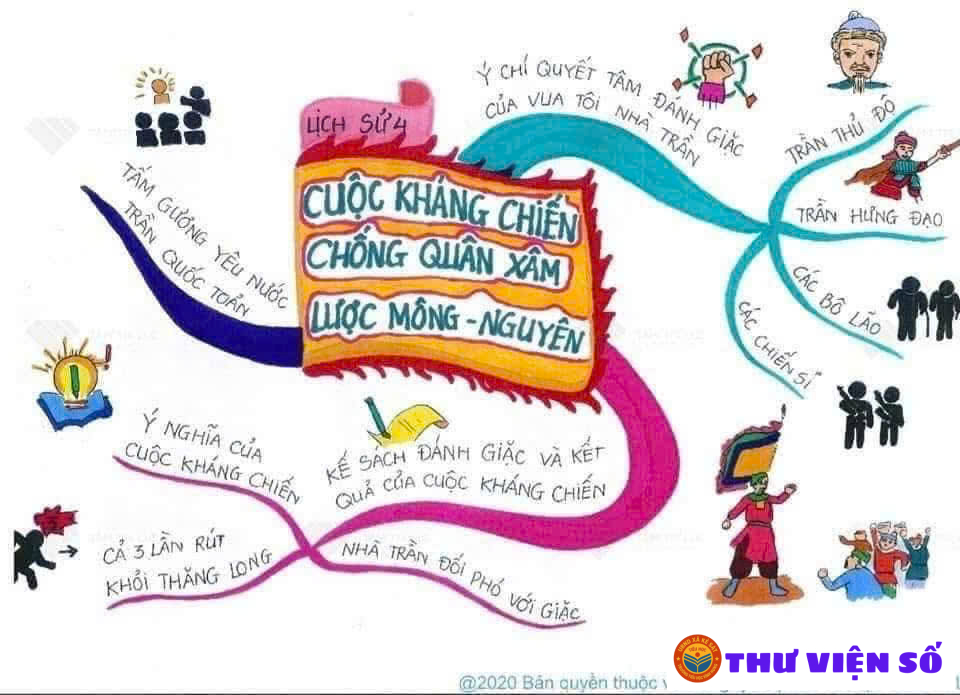 LỊCH SỬ 4
CUỘC KHÁNG CHIẾN
CHỐNG QUÂN XÂM
LƯỢC MÔNG - NGUYÊN
Ý CHÍ QUYẾT TÂM ĐÁNH GIẶC
CỦA VUA TÔI NHÀ TRẦN
TRẦN THỦ ĐỘ
TRẦN HƯNG ĐẠO
CÁC BÔ LÃO
CÁC CHIẾN SĨ
TẤM GƯƠNG YÊU NƯỚC
TRẦN QUỐC TOẢN
KẾ SÁCH ĐÁNH GIẶC VÀ KẾT
QUẢ CỦA CUỘC KHÁNG CHIẾN
Ý NGHĨA CỦA
CUỘC KHÁNG CHIẾN
CẢ 3 LẦN RÚT
KHỎI THĂNG LONG
NHÀ TRẦN ĐỐI PHÓ VỚI GIẶC
THƯ VIỆN SỐ
@2020 Bản quyền thuộc